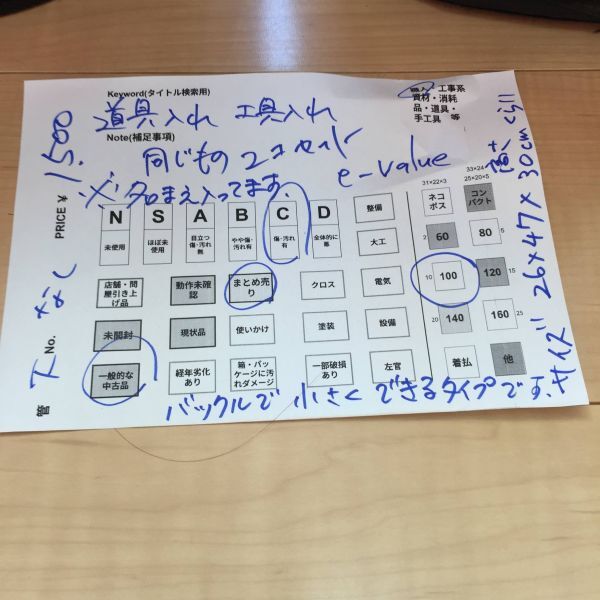 Keyword(タイトル検索用)
道具入れ 工具入れ
Note(補足事項)
同じもの 2コセット
※名まえ入ってます。
e-value
職人・工事系
資材・消耗
品・道具・
手工具 等
PRICE ¥ 1500
管 下 No. なし
N S A B C D
未使用
ほぼ未使用
目立つ傷・汚れ無
やや傷・汚れ有
傷・汚れ有
全体的に悪
整備
大工
店舗・問屋引き上げ品
動作未確認
まとめ売り
クロス
電気
未開封
現状品
使いかけ
塗装
設備
一般的な中古品
経年劣化あり
箱・パッケージに汚れダメージ
一部破損あり
左官
31×22×3
ネコポス
33×24
25×20×5
コンパクト
2 60
80 5
10 100
120 15
20 140
160 25
着払
他
バックルで 小さく できるタイプです。
サイズ!! 26×47×30cm ぐらい
高さ